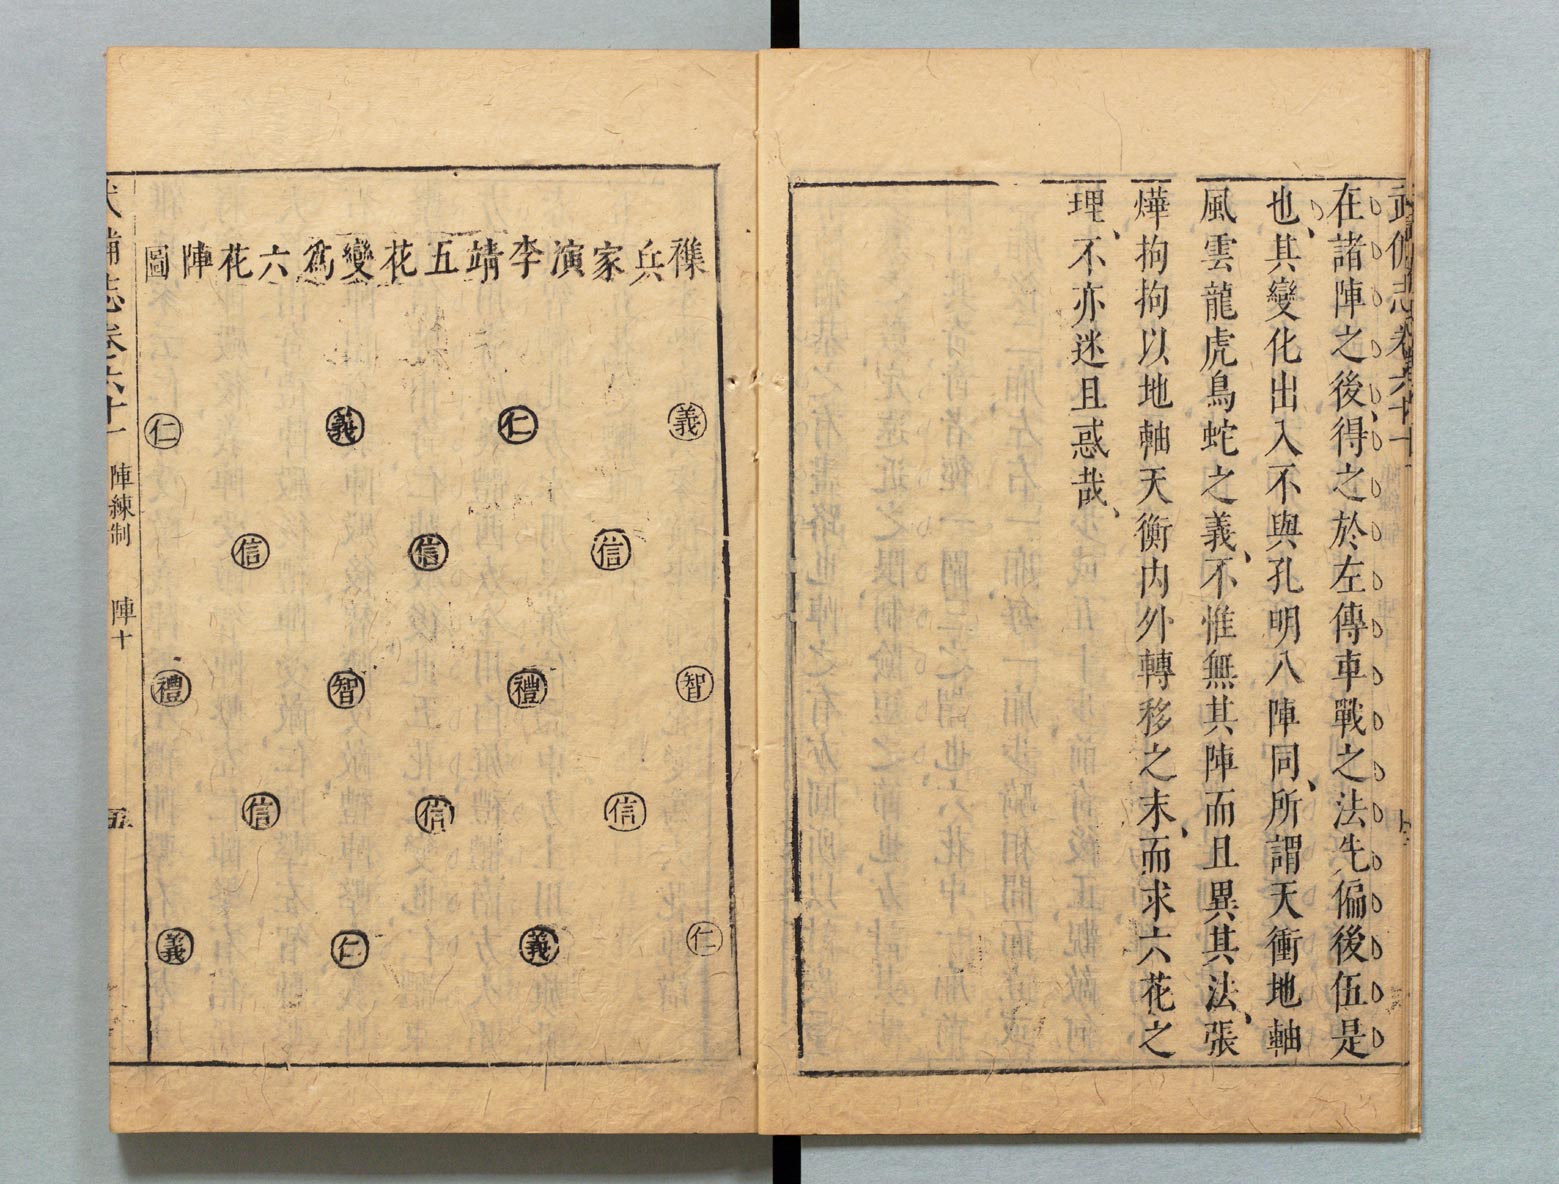 武備志卷六十一
在諸陣之後得之於左傳車戰之法先偏後伍是
也、其變化出入不與孔明八陣同、所謂天衝地軸
風雲龍虎鳥蛇之義、不惟無其陣而且異其法、張
燁拘拘以地軸天衡內外轉移之末、而求六花之
理、不亦迷且惑哉、
襍兵家演李靖五花變爲六花陣圖
義 仁 義 仁
信 信 信
智 禮 智 禮
信 信 信
仁 義 仁 義
武備志卷六十一 陣練制 陣十 五